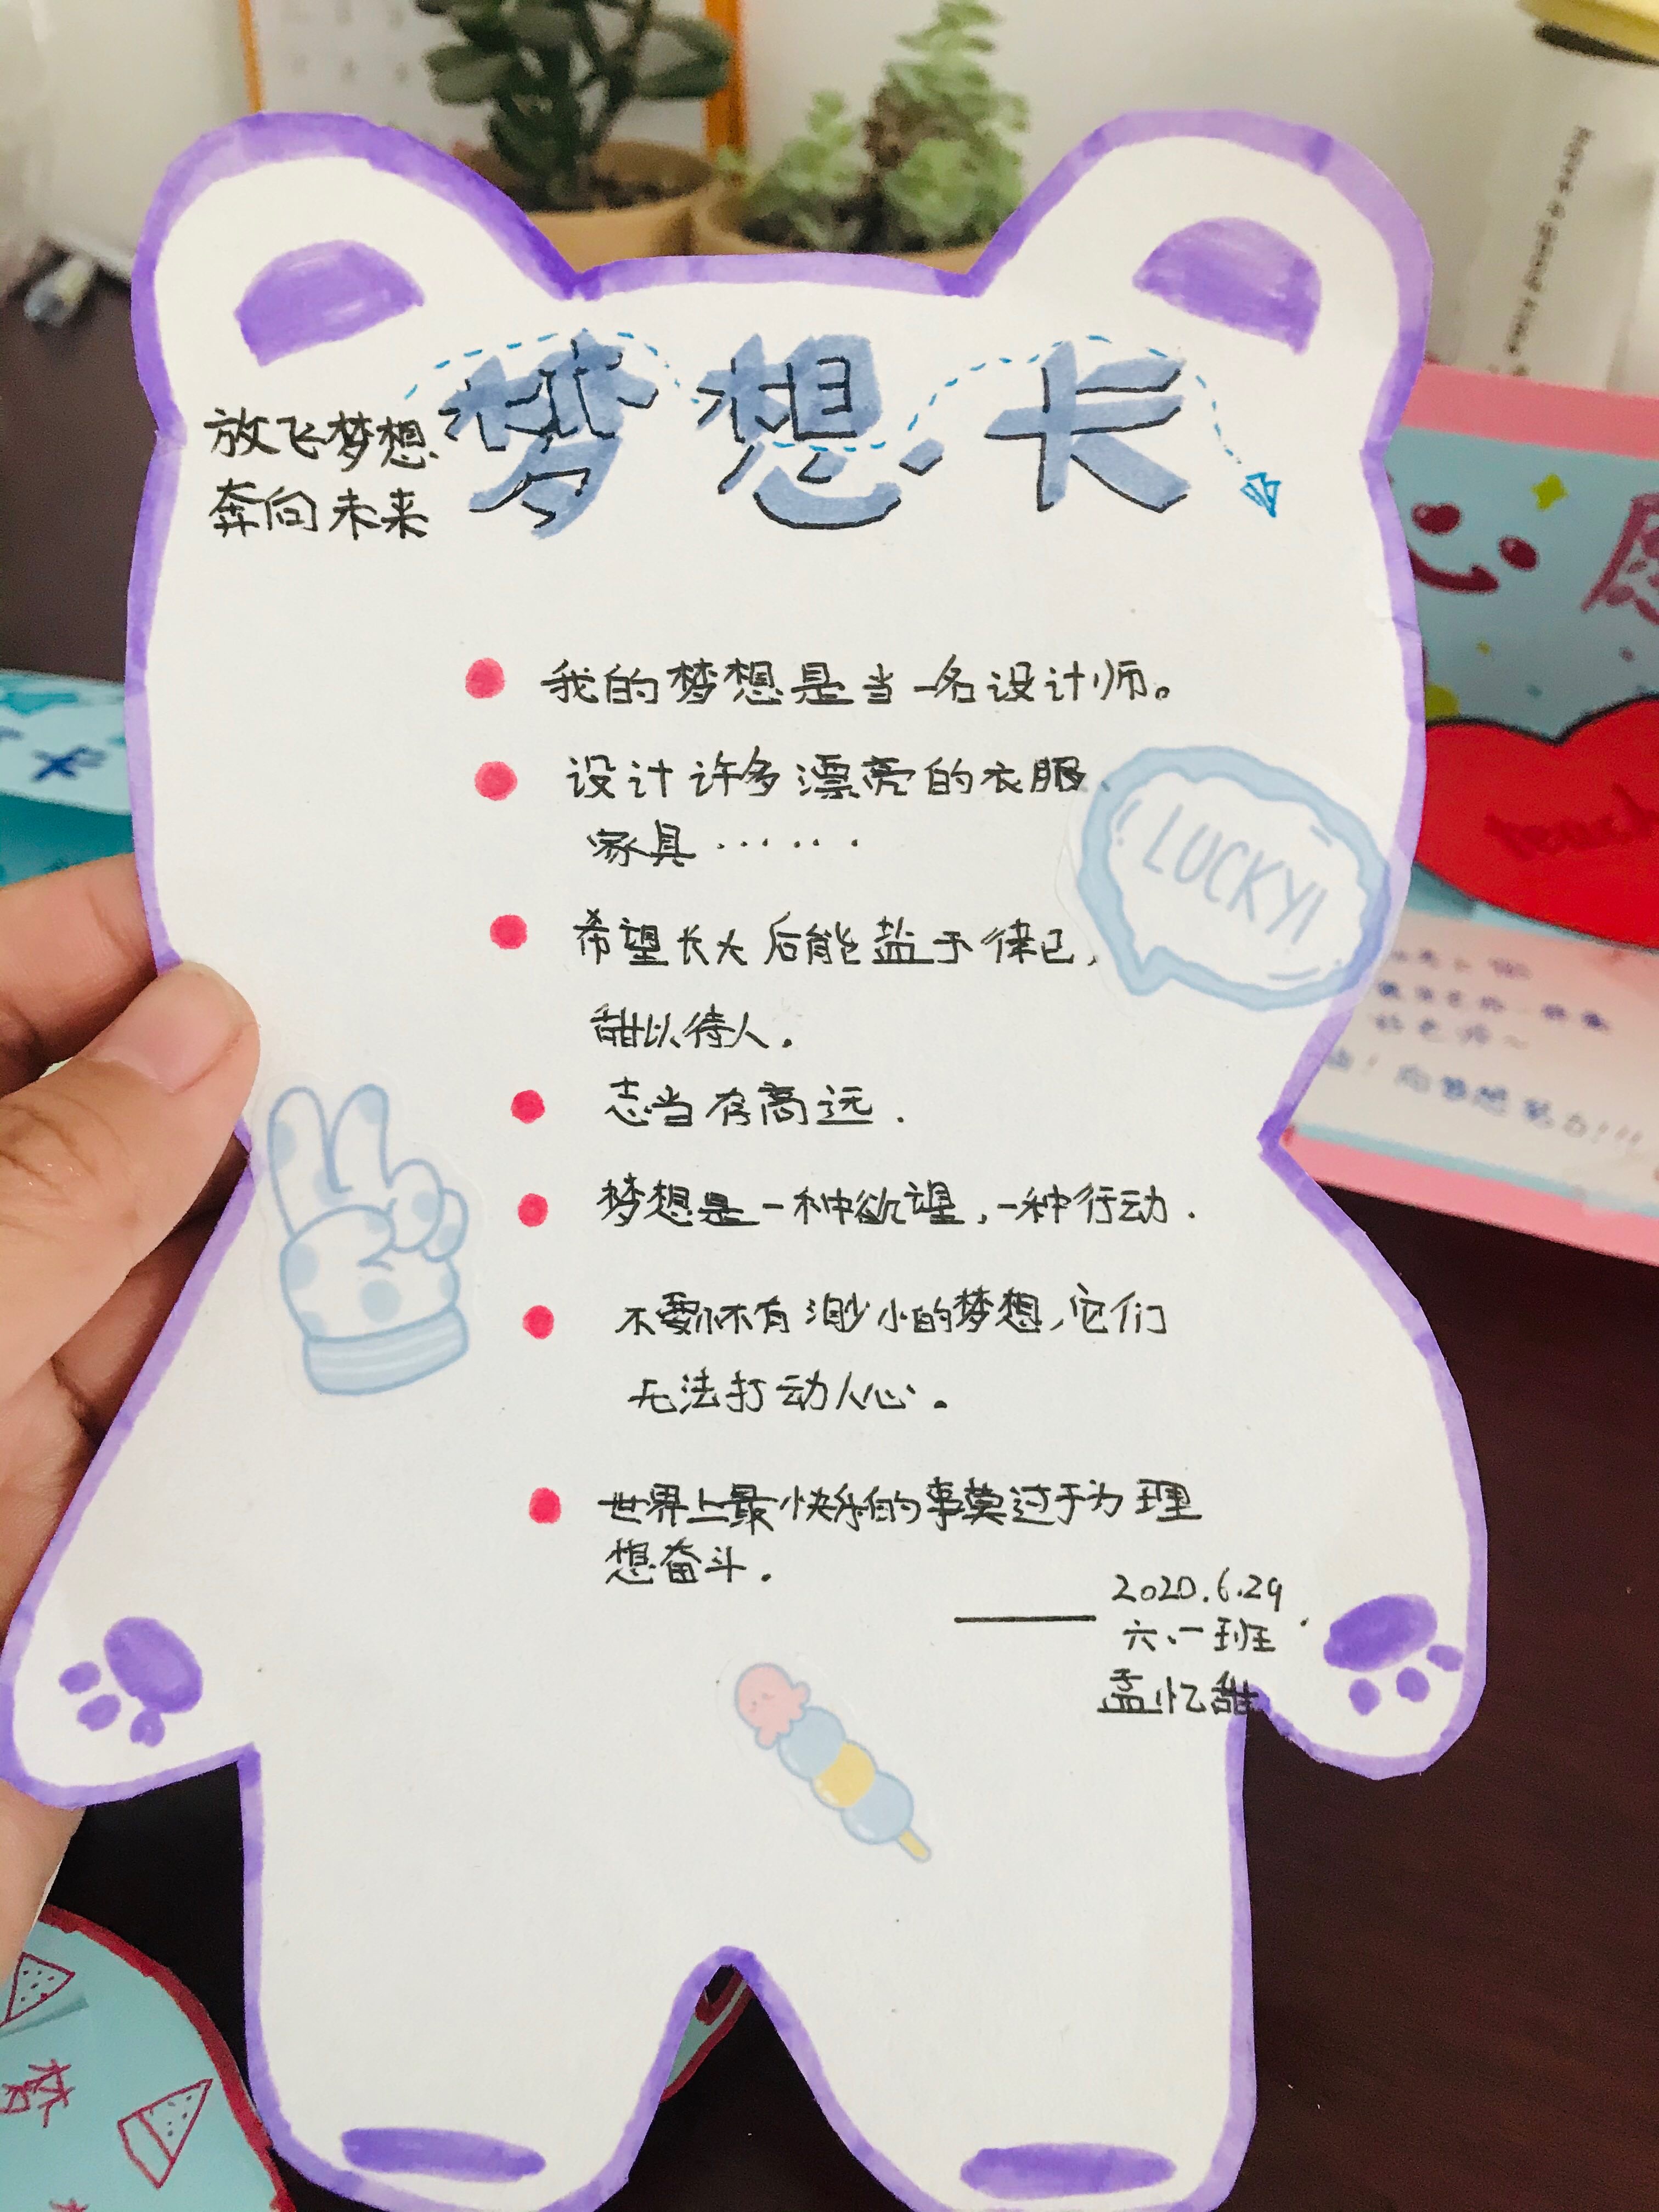 梦想卡
放飞梦想
奔向未来
我的梦想是当一名设计师。
设计许多漂亮的衣服、
家具······
LUCKY!
希望长大后能盐于律己,
甜以待人.
志当存高远.
梦想是一种欲望,一种行动.
不要怀有渺小的梦想,它们
无法打动人心。
世界上最快乐的事莫过于为理
想奋斗.
——2020.6.29
六、一班
孟忆甜